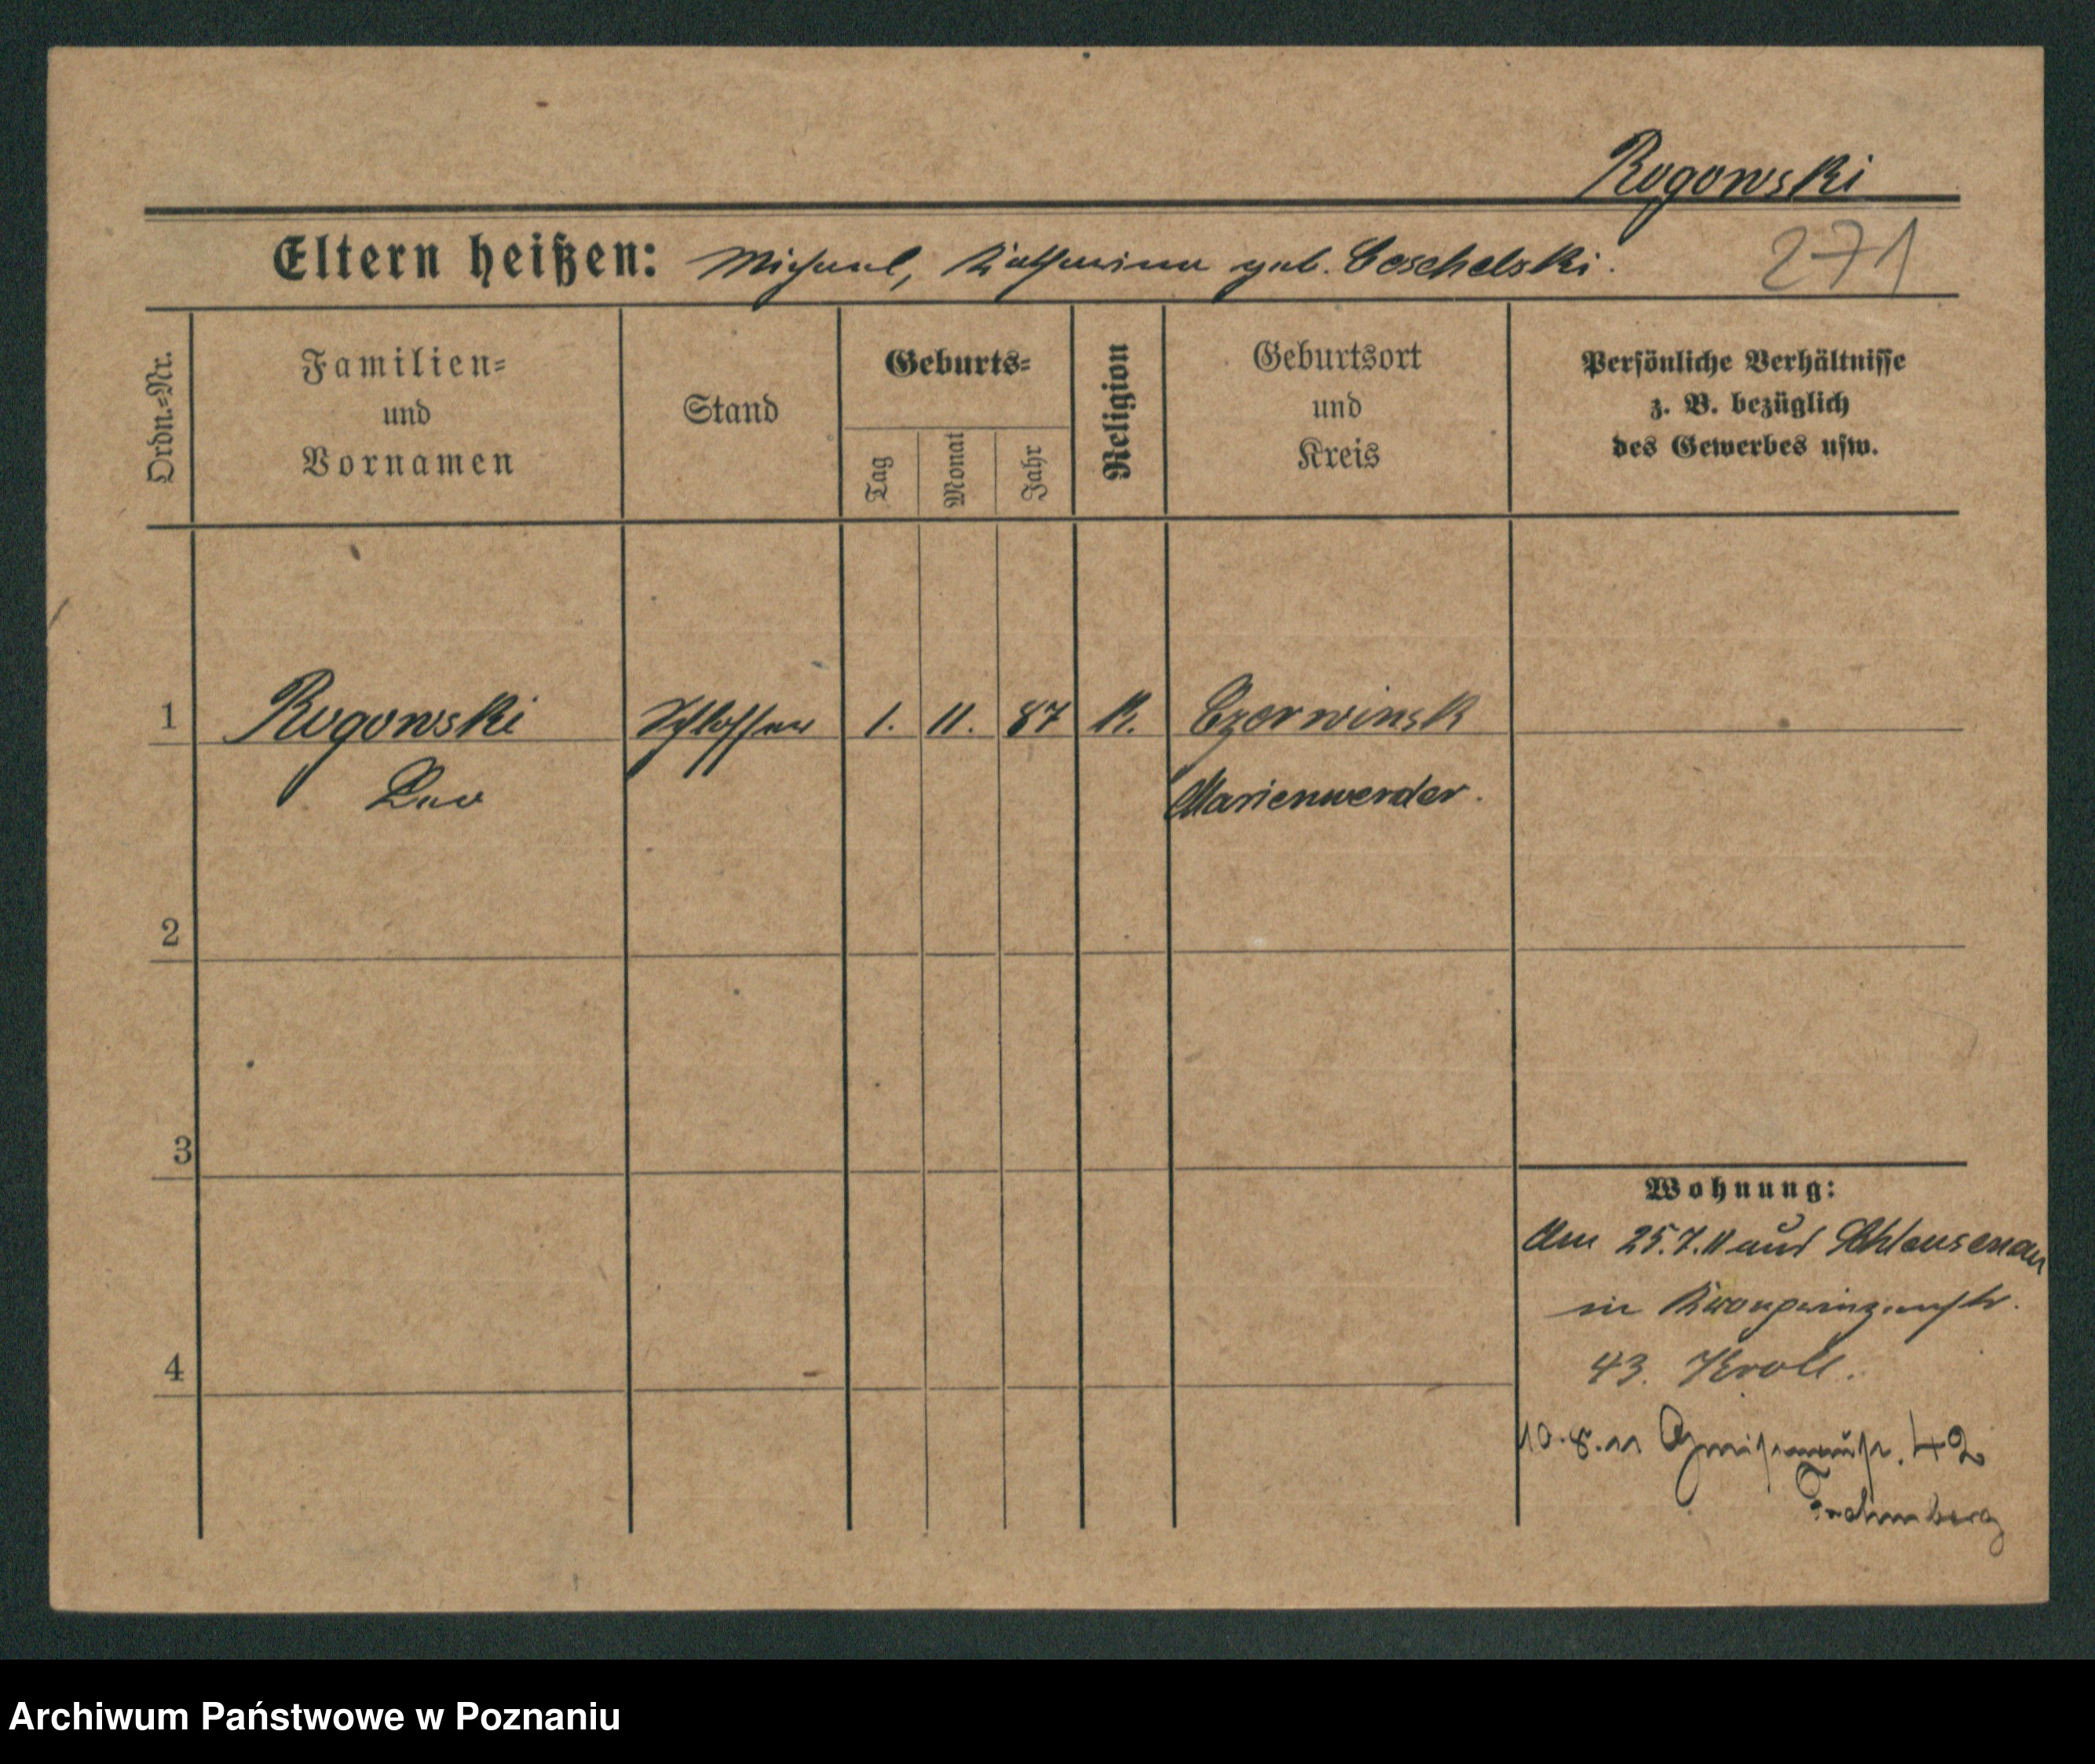 Rogowski
271
Eltern heißen: Michael, Katharina geb. Coschelski.
Ordn.=Nr.
Familien=
und
Vornamen
Stand
Geburts=
Tag
Monat
Jahr
Religion
Geburtsort
und
Kreis
Persönliche Verhältnisse
z. B. bezüglich
des Gewerbes usw.
1 Rogowski Schlosser 1. 11. 87 K. Czerwinsk
Leo Marienwerder.
2
3
Wohnung:
Am 25.7.11 aus Schleusenau
in Kronprinzenstr.
43. Kroll.
4
10.8.11 42
Archiwum Państwowe w Poznaniu